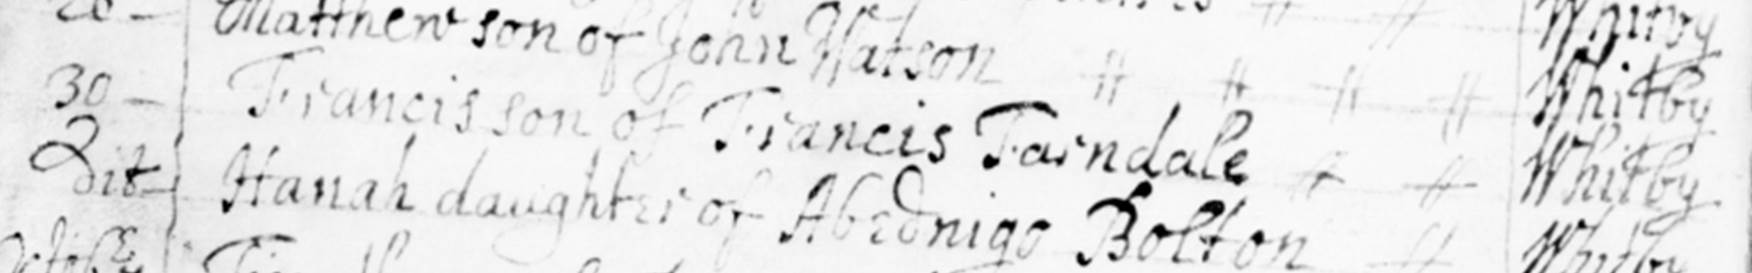 Matthew son of John Watson # # # # Whitby
30 – Francis son of Francis Farndale # # Whitby
Dit– Hanah daughter of Abednigo Bolton # Whitby